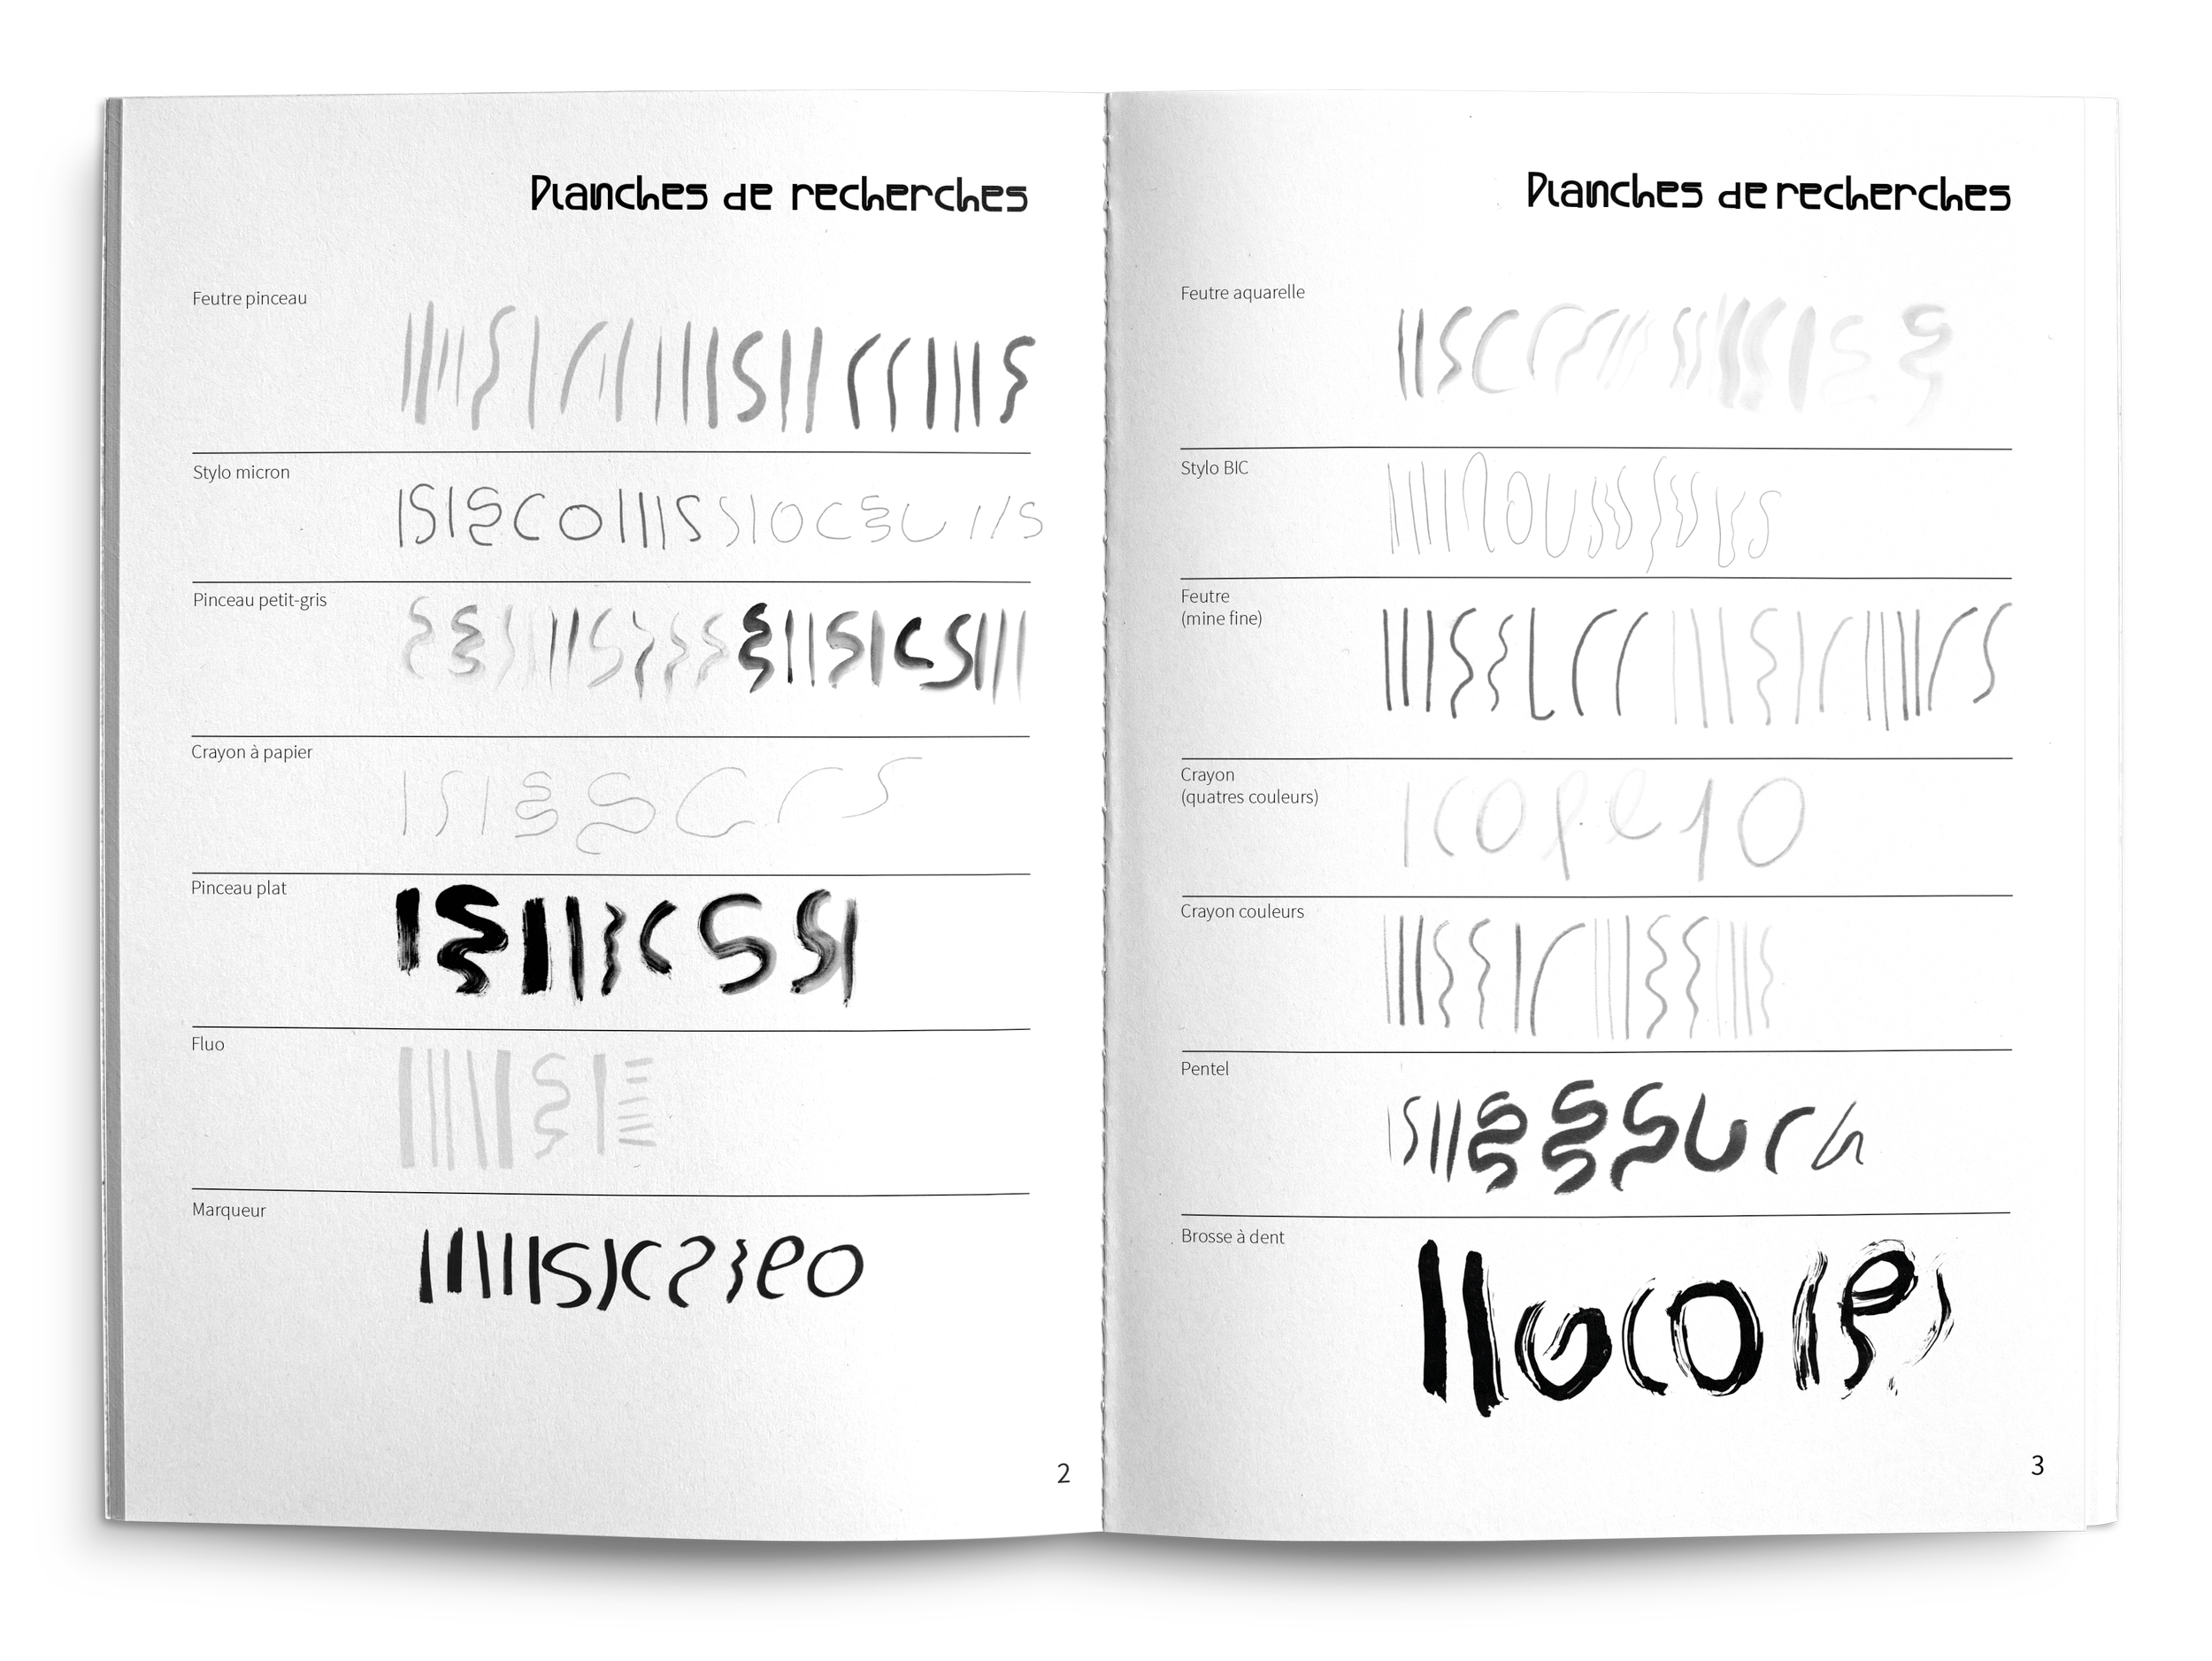 Planches de recherches
Feutre pinceau
Stylo micron
Pinceau petit-gris
Crayon à papier
Pinceau plat
Fluo
Marqueur
2
Planches de recherches
Feutre aquarelle
Stylo BIC
Feutre
(mine fine)
Crayon
(quatres couleurs)
Crayon couleurs
Pentel
Brosse à dent
3